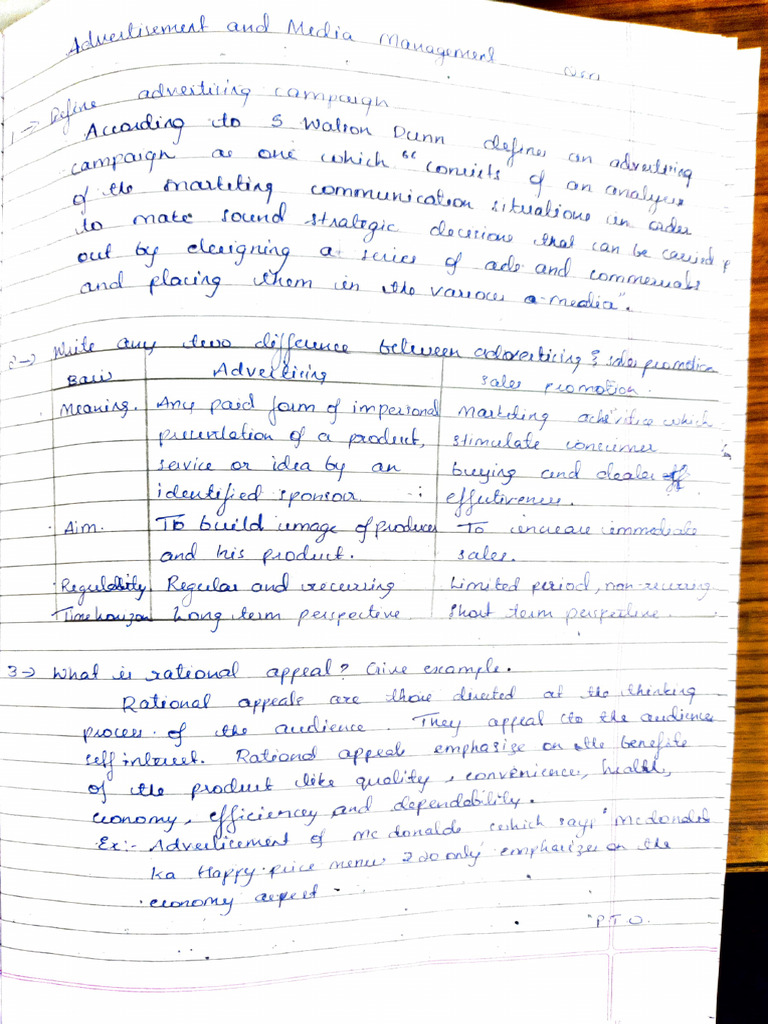 Advertisement and Media Management
1 → Define advertising campaign
According to S Watson Dunn defines an advertising
campaign as one which "consists of an analysis
of the marketing communication situations in order
to make sound strategic decisions that can be carried
out by designing a series of ads and commercials
and placing them in the various a media".
2 → Write any two difference between advertising & sales promotion
Basis Advertising sales promotion.
Meaning. Any paid form of impersonal Marketing activities which
presentation of a product, stimulate consumer
service or idea by an buying and dealer
identified sponsor. effectiveness.
Aim. To build image of producer To increase immediate
and his product. sales.
Regulability Regular and recurring Limited period, non-recurring
Time horizon Long term perspective. Short term perspective.
3 → What is rational appeal? Give example.
Rational appeals are those directed at the thinking
process of the audience. They appeal to the audience
self interest. Rational appeals emphasize on the benefits
of the product like quality, convenience, health,
economy, efficiency and dependability.
Ex:- Advertisement of mc donalds which says "mcdonalds
ka Happy price menu ₹20 only" emphasizes on the
economy aspect.
P.T.O.